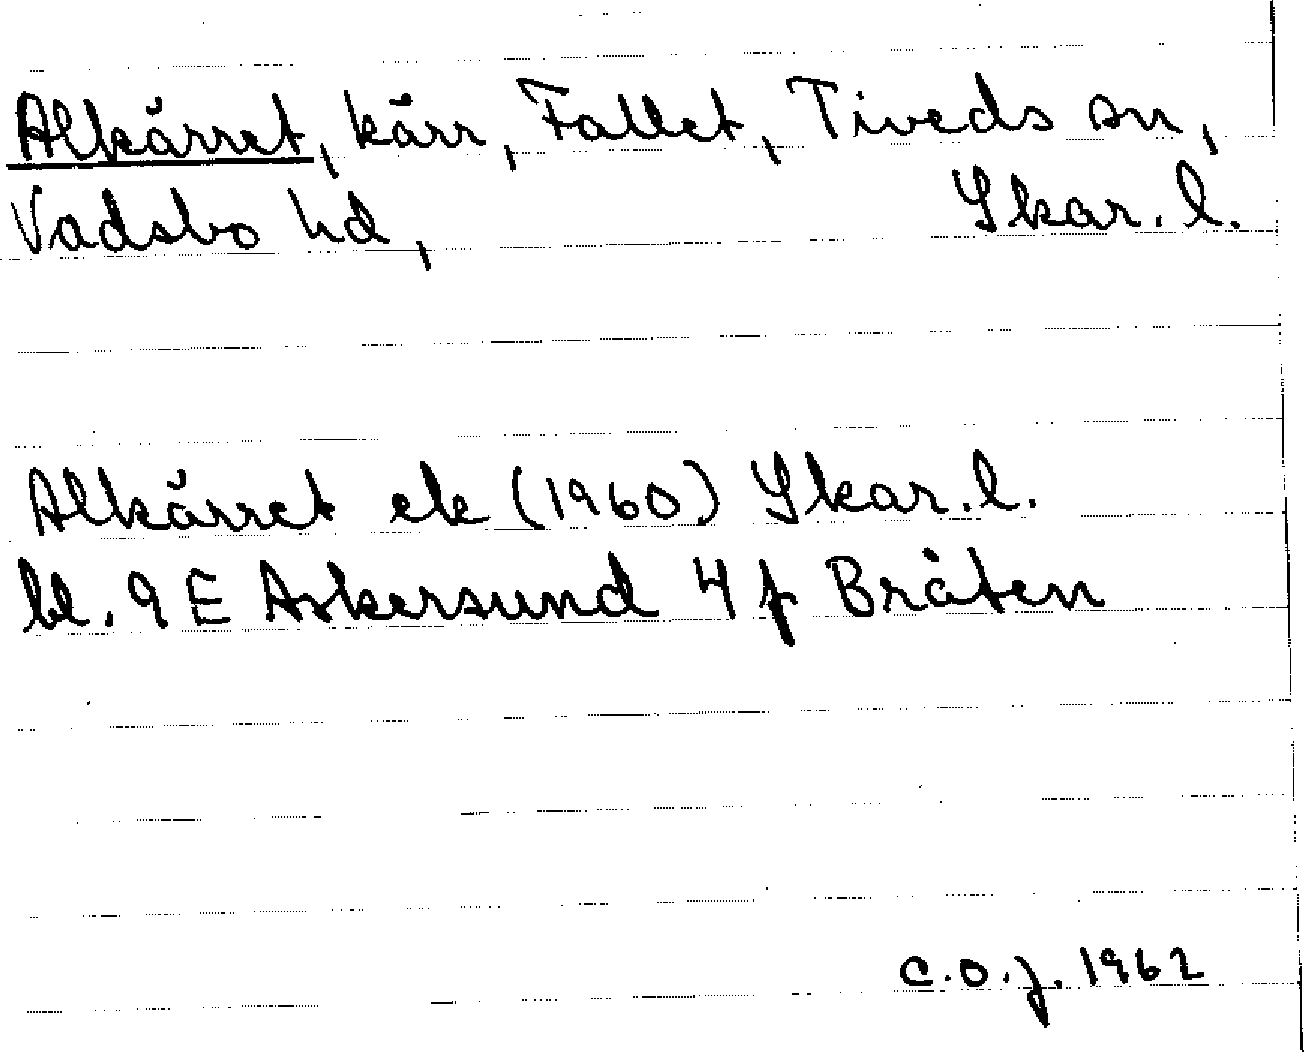 Alkärret, kärr, Fallet, Tiveds sn,
Vadsbo hd, Skar. l.
Alkärret ek (1960) Skar. l.
bl. 9 E Askersund 4 f Bråten
C.O.J. 1962